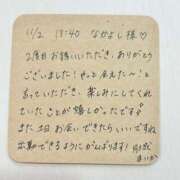 11/2 13:40 なかよし様♡
2度目お誘いいただき、ありがとう
ございました！やっと会えた〜！と
言っていただき、楽しみにしてくれて
いたことが嬉しかったです。
また土日お会いできたらいいですね
出勤できるようにがんばります！
まいか